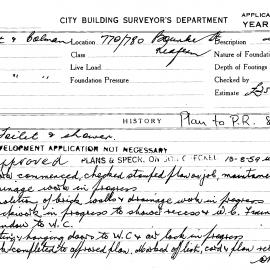 CITY BUILDING SURVEYOR'S DEPARTMENT
APPLICA
YEAR
& Colman Location 770/780 Bourke St
Redfern
Descriptio
" " Class
Nature of Foundation
Live Load
Depth of Footings
Foundation Pressure
Checked by
Estimate £
HISTORY Plan to P.R.
Toilet & shower.
DEVELOPMENT APPLICATION NOT NECESSARY
approved PLANS & SPECK. ON 10-8-59
commenced, checked stamped plan on job, maintenance
drainage work in progress
of brick walls & drainage work in progress
in progress to shower recess & W.C.
window to W.C.
hanging doors to W.C. & work in progress
completed to approved plan. Marked off list, card & plan